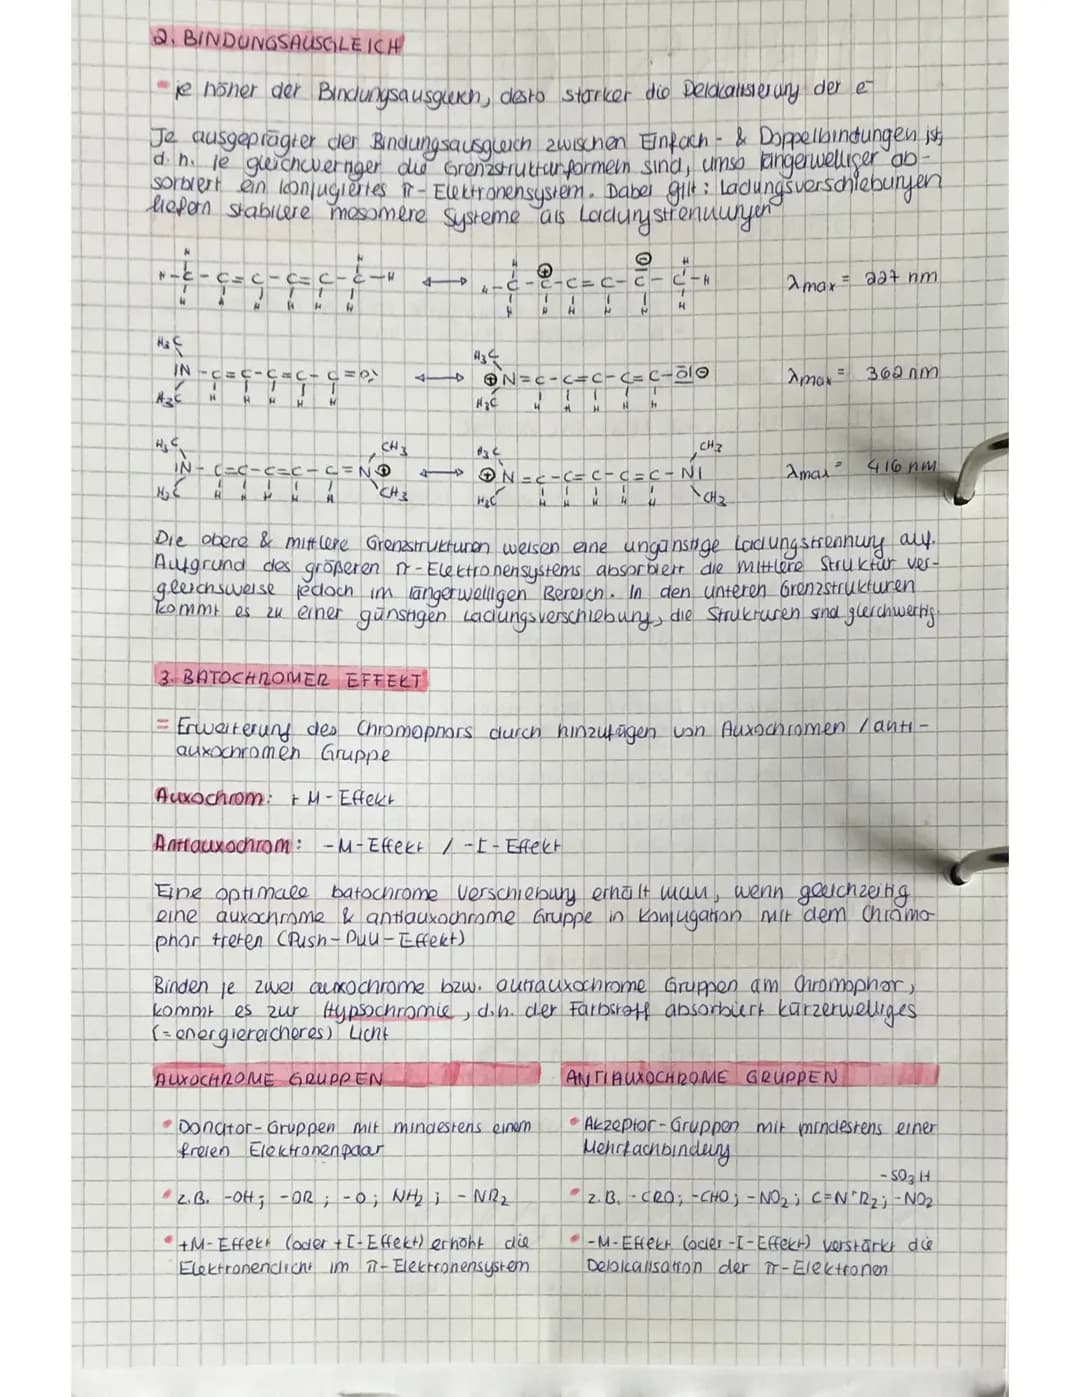 2. BINDUNGSAUSGLEICH
- je höher der Bindungsausgleich, desto stärker die Delokalisierung der e⁻
Je ausgeprägter der Bindungsausgleich zwischen Einfach- & Doppelbindungen ist,
d.h. je gleichwertiger die Grenzstrukturformeln sind, umso längerwelliger ab-
sorbiert ein konjugiertes π-Elektronensystem. Dabei gilt: Ladungsverschiebungen
liefern stabilere mesomere Systeme als Ladungstrennungen
H-C-C=C-C=C-C-H ⟷ H-C-C⊕-C=C-C⊖-C-H λmax = 227 nm
H₃C H₃C
IN-C=C-C=C-C=O ⟷ ⊕N=C-C=C-C=C-O⊖ λmax = 362 nm
H₃C H₃C
H₃C CH₃ H₃C CH₃
IN-C=C-C=C-C=N⊕ ⟷ ⊕N=C-C=C-C=C-NI λmax = 416 nm
H₃C CH₃ H₃C CH₃
Die obere & mittlere Grenzstrukturen weisen eine ungünstige Ladungstrennung auf.
Aufgrund des größeren π-Elektronensystems absorbiert die mittlere Struktur ver-
gleichsweise jedoch im längerwelligen Bereich. In den unteren Grenzstrukturen
kommt es zu einer günstigen Ladungsverschiebung, die Strukturen sind gleichwertig.
3. BATOCHROMER EFFEKT
= Erweiterung des Chromophors durch hinzufügen von Auxochromen / anti-
auxochromen Gruppe
Auxochrom: + M-Effekt
Antiauxochrom: -M-Effekt / -I-Effekt
Eine optimale batochrome Verschiebung erhält man, wenn gleichzeitig
eine auxochrome & antiauxochrome Gruppe in Konjugation mit dem Chromo-
phor treten (Push-Pull-Effekt)
Binden je zwei auxochrome bzw. antiauxochrome Gruppen am Chromophor,
kommt es zur Hypsochromie, d.h. der Farbstoff absorbiert kürzerwelliges
(=energiereicheres) Licht
AUXOCHROME GRUPPEN
• Donator-Gruppen mit mindestens einem
freien Elektronenpaar
• z.B. -OH; -OR; -O; NH₂; -NR₂
• +M-Effekt (oder +I-Effekt) erhöht die
Elektronendicht im π-Elektronensystem
ANTIAUXOCHROME GRUPPEN
• Akzeptor-Gruppen mit mindestens einer
Mehrfachbindung
-SO₃H
• z.B. -CRO; -CHO; -NO₂; C=N⁺R₂; -NO₂
• -M-Effekt (oder -I-Effekt) verstärkt die
Delokalisation der π-Elektronen